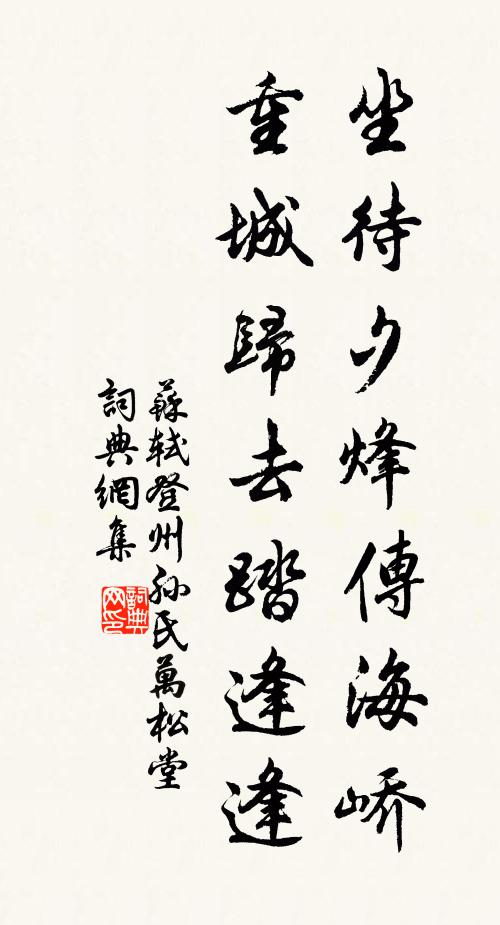 坐待夕烽傳海嶠
重城歸去踏逢逢
蘇軾登州孙氏萬松堂
詞典網集
詞典网印